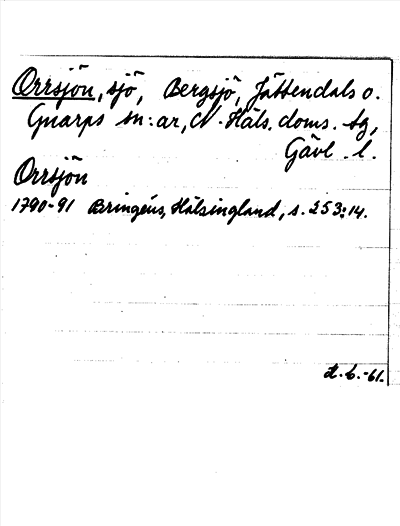 Orrsjön, sjö, Bergsjö, Jättendals o.
Gnarps sn:ar, N. Häls. doms. tg,
Gävl. l.
Orrsjön
1790-91 Bringéus, Hälsingland, s. 253:14.
-61.